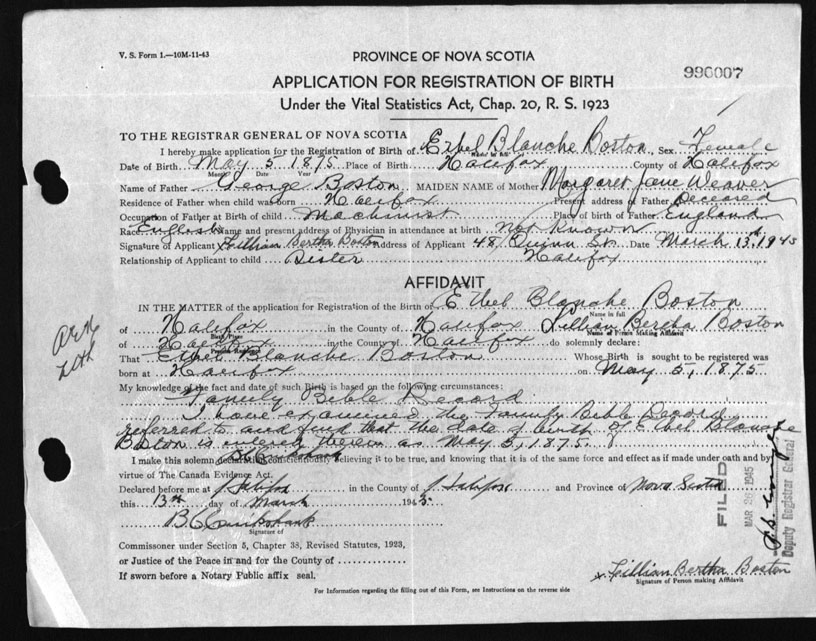 V. S. Form 1.—10M-11-43
PROVINCE OF NOVA SCOTIA
996007
APPLICATION FOR REGISTRATION OF BIRTH
Under the Vital Statistics Act, Chap. 20, R. S. 1923
TO THE REGISTRAR GENERAL OF NOVA SCOTIA
I hereby make application for the Registration of Birth of Ethel Blanche Boston Sex Female
Name in full
Date of Birth May 5 1875 Place of Birth Halifax County of Halifax
Month Day Year
Name of Father George Boston, MAIDEN NAME of Mother Margaret Jane Weaver
Residence of Father when child was born Halifax Present address of Father Deceased
Occupation of Father at Birth of child Machinist Place of birth of Father England
Race English Name and present address of Physician in attendance at birth Not Known
Signature of Applicant Lillian Bertha Boston Address of Applicant 48 Quinn St. Date March 13, 1945
Relationship of Applicant to child Sister Halifax
AFFIDAVIT
IN THE MATTER of the application for Registration of the Birth of Ethel Blanche Boston
Name in full
of Halifax in the County of Halifax Lillian Bertha Boston
Name of Person Making Affidavit
of Halifax in the County of Halifax do solemnly declare:
That Ethel Blanche Boston Whose Birth is sought to be registered was
born at Halifax on May 5, 1875
My knowledge of the fact and date of such Birth is based on the following circumstances:
Family Bible Record
I have examined the Family Bible Record
referred to and find that the date of birth of Ethel Blanche
Boston is entered therein as May 5, 1875.
I make this solemn declaration conscientiously believing it to be true, and knowing that it is of the same force and effect as if made under oath and by
virtue of The Canada Evidence Act.
Declared before me at Halifax in the County of Halifax and Province of Nova Scotia
this 13th day of March 1945
B C Cruikshank
Signature of
Commissioner under Section 5, Chapter 38, Revised Statutes, 1923,
or Justice of the Peace in and for the County of
If sworn before a Notary Public affix seal.
x Lillian Bertha Boston
Signature of Person making Affidavit
For Information regarding the filling out of this Form, see Instructions on the reverse side
FILED
MAR 26 1945
Deputy Registrar General